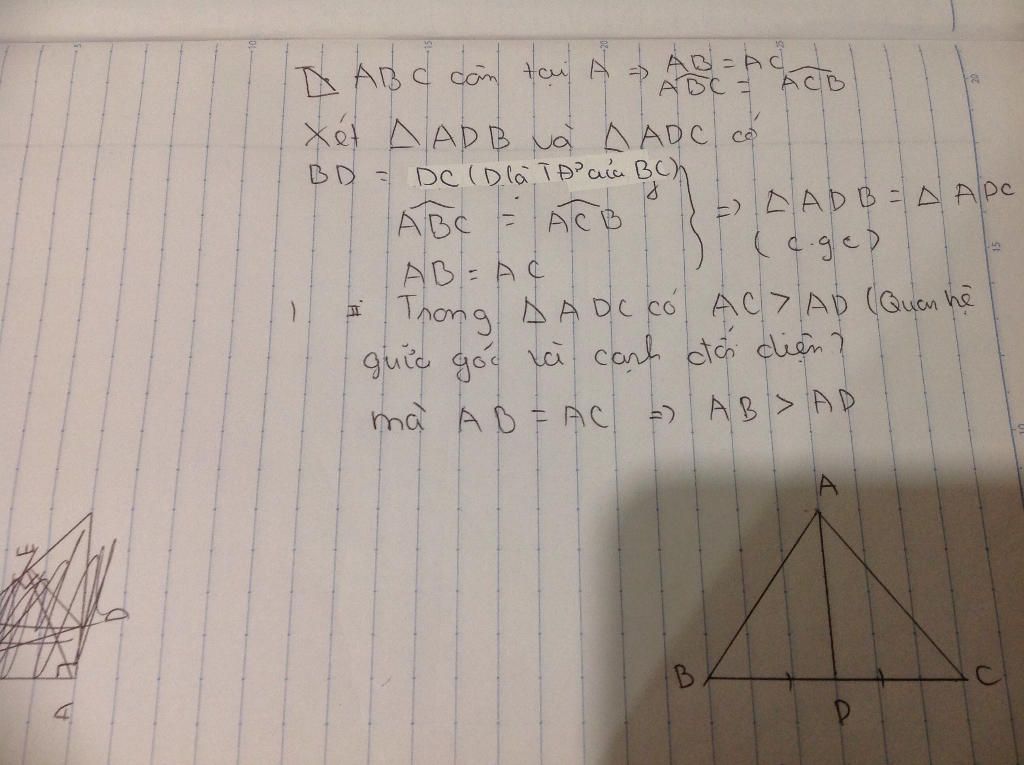 Δ ABC cân tại A => AB = AC
ABC = ACB
Xét Δ ADB và Δ ADC có
BD = DC (D là TĐ² của BC)
ABC = ACB
AB = AC
=> Δ ADB = Δ ADC
(c.g c)
Trong Δ ADC có AC > AD (Quan hệ
giữa góc và cạnh đối diện)
mà AB = AC => AB > AD
A
B
D
C
E
D
A